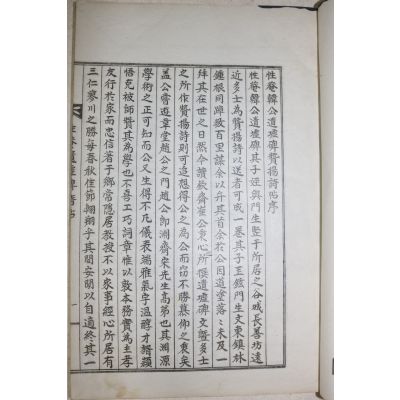 性菴韓公遺墟碑贊揚詩帖序
性菴韓公遺墟碑其子姪與門生豎于所居之谷城長善坊遠
近多士爲贊揚詩以送者可成一卷其子王鐵門生文東鎭林
鍾根同蹄致百里謀余以弁其首余於公因道塗落落未及一
拜其在世之日然今讀欽齋崔公秉心所撰遺墟碑文曁多士
之所作贊揚詩則可追想得公之爲公而窃不勝慕仰之衷矣
盖公嘗遊韋堂趙公之門趙公卽淵齋宋先生高弟也其淵源
學術之正可知而公又生得不凡儀表端雅氣宇溫醇才藉穎
悟克被師贊其爲學也不喜工巧詞章惟以敦本務實爲主孝
友行於家而忠信著于鄕常隱居敎授不以家事經心所居有
三仁寥川之勝每春秋佳節翱翔乎其間安閒以自適終其一